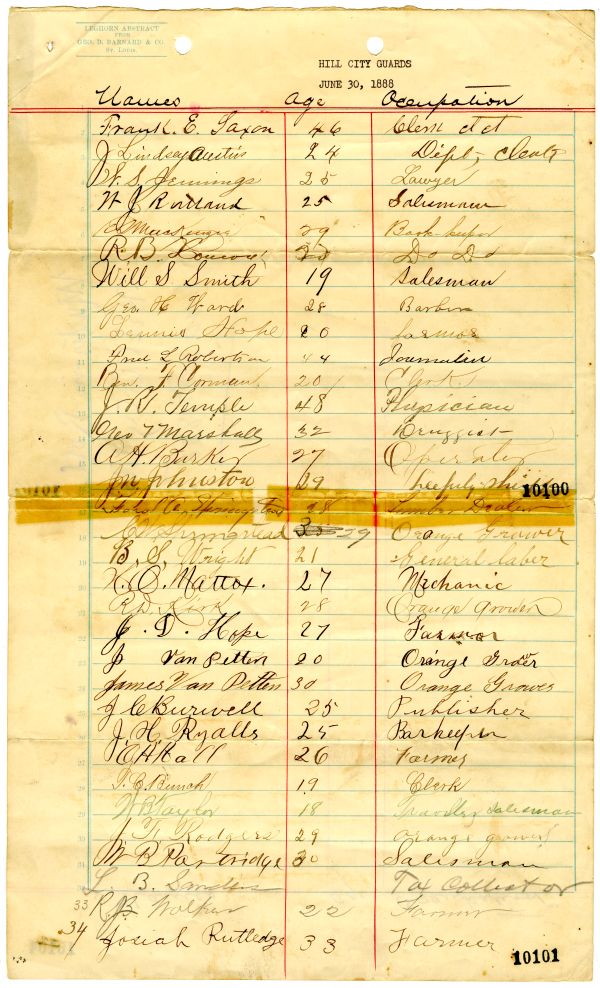 LEGHORN ABSTRACT
FROM
GEO. D. BARNARD & CO.
ST. LOUIS.
HILL CITY GUARDS
JUNE 30, 1888
Names Age Occupation
Frank. E. Saxon 46 Clerk ct ct
J Lindsay Austin 24 Dept, Clerk
W. S. Jennings 25 Lawyer
W J 25 Salesman
29 Book-keeper
R. B. 23 Do Do
Will S. Smith 19 Salesman
Geo H Ward 28 Barber
Dennis Hope 20 farmer
Fred L Robertson 44 Journalist
Ben. F 20 Clerk.
J. R. Temple 48 Physician
Geo T Marshall 32 Druggist
A H. Barker 27 Operator
Jno Johnston 39
10100
28 Lumber Dealer
Springstead 29 Orange Grower
B. S. Wright 21 General laber
N. O. Mattox. 27 Mechanic
R. D. Kirk 28 Orange grower
J. D. Hope 27 Farmer
J Van Petten 20 Orange Groer
James Van Petten 30 Orange Grower
J C Burwell 25 Publisher
J. H. Ryalls 25 Barkeeper
Hall 26 Farmer
Bunch 19 Clerk
W B Taylor 18 Salesman
J. F. Rodgers 29 orange grower
W B Partridge 30 Salesman
L. B. Sanders Tax Collector
33 R. B Walker 22 Farmer
34 Josiah Rutledge 33 Farmer
10101